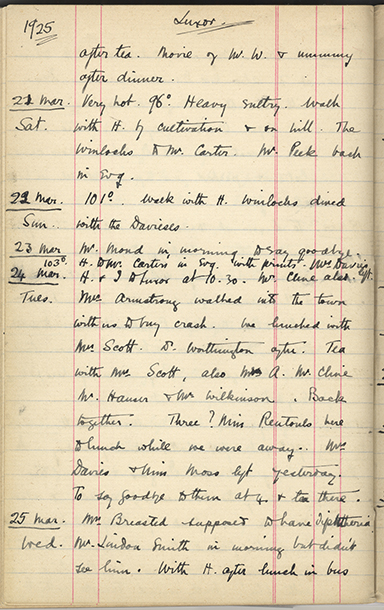 1925 Luxor.
after tea. Movie of Mr. W. & mummy
after dinner.
21 Mar. Very hot. 96° Heavy sultry. Walk
Sat. with H. by cultivation & on hill. The
Winlocks to Mr. Carter. Mr. Peek back
in Evg.
22 Mar. 101°. Walk with H. Winlocks dined
Sun. with the Davieses.
23 Mar Mr. Mond in morning to say goodbye.
103°. H. to Mr. Carter in Evg. with prints. Mrs Davies left.
24 Mar. H. & I to Luxor at 10.30. Mr. Cline also.
Tues. Mrs Armstrong walked into the town
with us to buy crash. We lunched with
Mrs Scott. Dr. Worthington after. Tea
with Mrs Scott, also Mrs A. Mr. Cline
Mr. Hauser & Mr Wilkinson. Back
together. Three? Miss Rentouls here
to lunch while we were away. Mrs
Davies & Miss Moss left yesterday.
To say goodbye to them at 4. & tea there.
25 Mar. Mrs Breasted supposed to have Diphtheria
Wed. Mr. Lindon Smith in morning but didn't
see him. With H. after lunch in bus